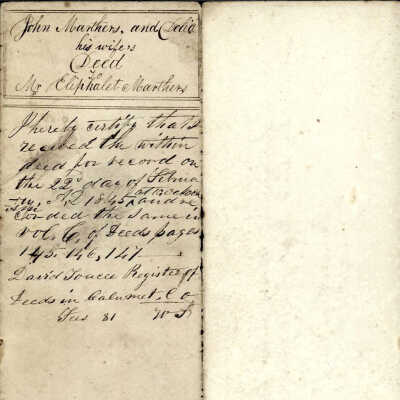 John Marthers, and Delia
his wifes
Deed
to
Mr Eliphalet Marthers
I hereby certify that I
received the within
deed for record on
the 22d day of Februa
ry, A.D 1845, at o'clock
and re
corded the same in
vol, C, of Deeds pages
145, 146, 147
David Register of
Deeds in Calumet, Co
Fees 81 W T